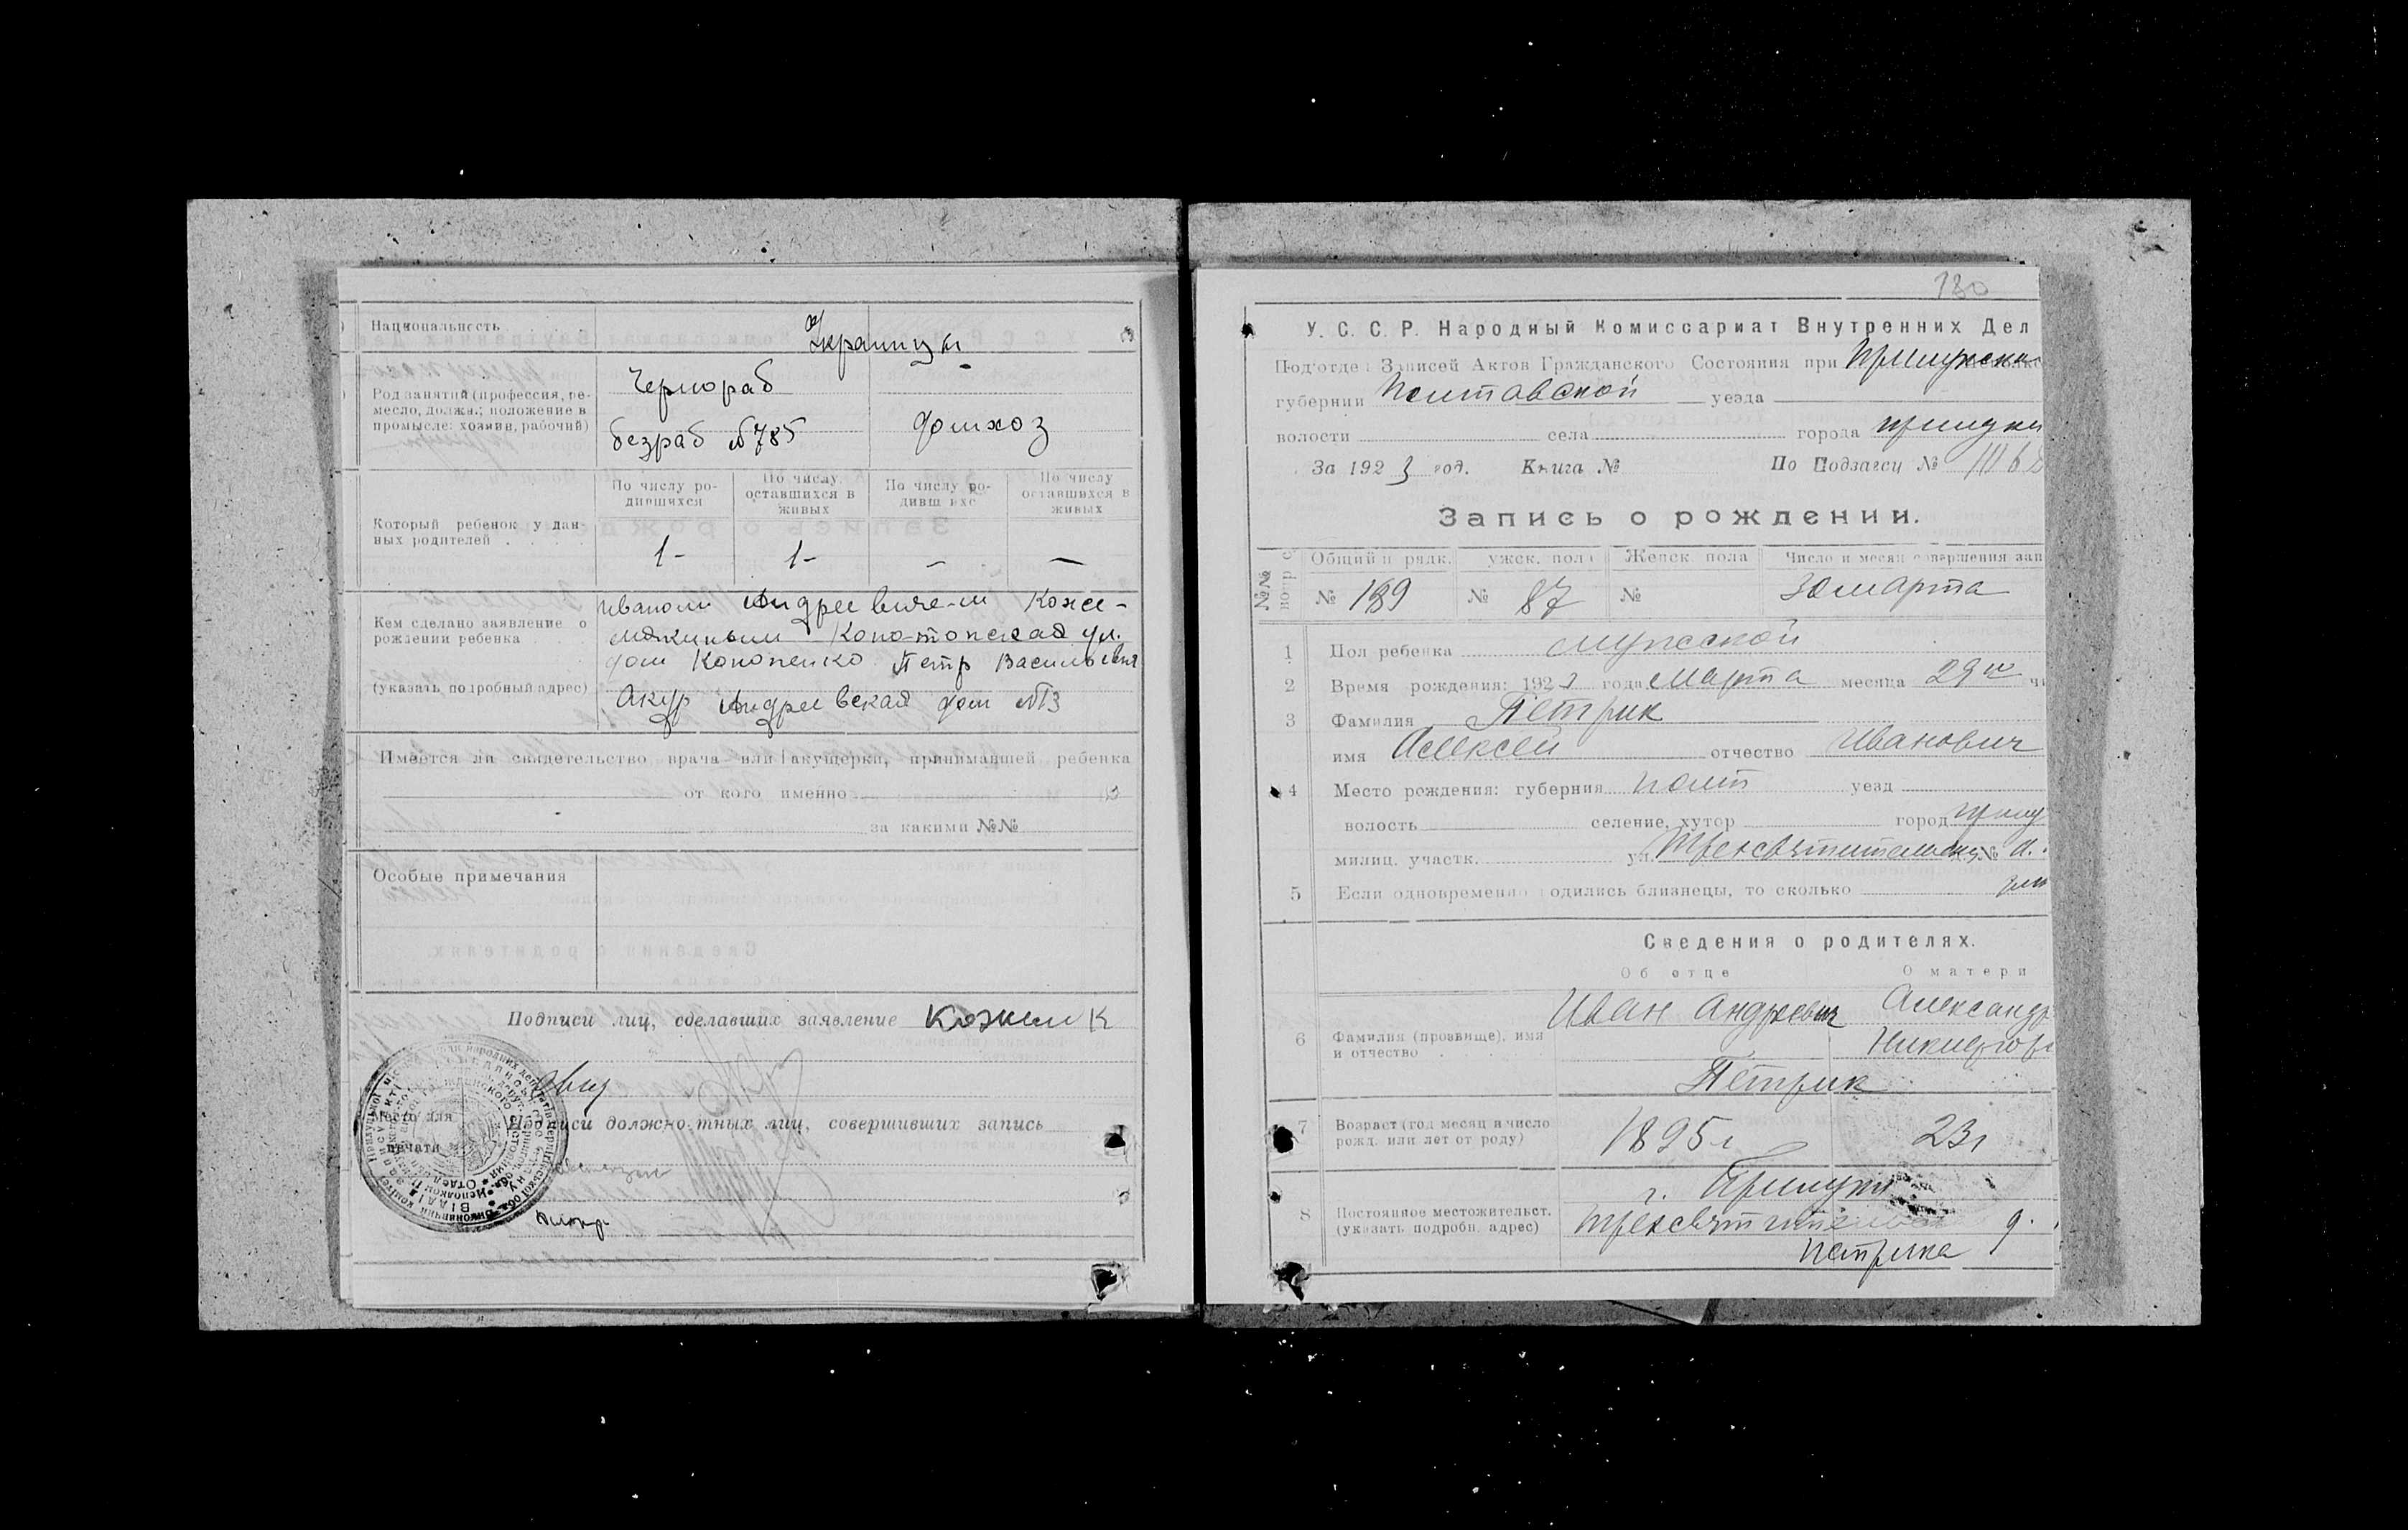 Национальность
Украинцы
Род занятий (профессия, ре-
месло, должн.; положение в
промысле: хозяин, рабочий)
Чернораб
безраб №785
домхоз
По числу ро-
дившихся
По числу
оставшихся в
живых
По числу ро-
дивш ихс
По числу
оставшихся в
живых
Который ребенок у дан-
ных родителей . . . .
1-
1-
—
—
Кем сделано заявление о
рождении ребенка . . .
(указать подробный адрес)
Иваном Андреевиче-м Коже-
мякиным Коно-топская ул.
дом Кононенко Петр Васильевич
Акур Андреевская дом №13
Имеется ли свидетельство врача или акушерки, принимавшей ребенка
от кого именно
за какими №№
Особые примечания
Подписи лиц, сделавших заявление
Место для
печати
Подписи должностных лиц, совершивших запись
130
У. С. С. Р. Народный Комиссариат Внутренних Дел
Под'отдел Записей Актов Гражданского Состояния при
губернии Полтавской уезда
волости села города Прилуки
За 1923 год. Книга № По Подзагсу №
Запись о рождении.
№№
Общий п рядк.
ужск. пол
Женск. пола
Число и месяц совершения зап
№ 189
№ 87
№
30 марта
1 Пол ребенка мужской
2 Время рождения: 1923 года Марта месяца 29го чи
3 Фамилия Петрик
имя Алексей отчество Иванович
4 Место рождения: губерния Полт уезд
волость селение, хутор город Прилу
милиц. участк. ул. Трехсвятительск № д.
5 Если одновременно родились близнецы, то сколько
Сведения о родителях.
Об отце
О матери
6 Фамилия (прозвище), имя
и отчество . .
Иван Андреевич
Александр
Никифоро
Петрик
7 Возраст (год месяц и число
рожд. или лет от роду)
1895 г
23 г
8 Постоянное местожительст.
(указать подробн. адрес)
г. Прилуки
Трехсвятительская д.
Петрика